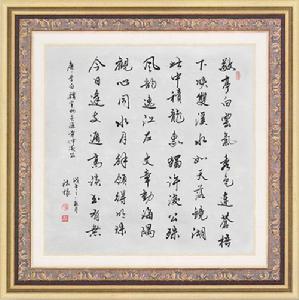 敬亭白雲氣秀色連蒼梧
下映雙溪水如天落鏡湖
此中積龍象獨許浚公殊
風韻逸江左文章動海隅
觀心同水月解領得明珠
今日逢支遁高談出有無
唐李白贈宣州靈源寺仲浚公